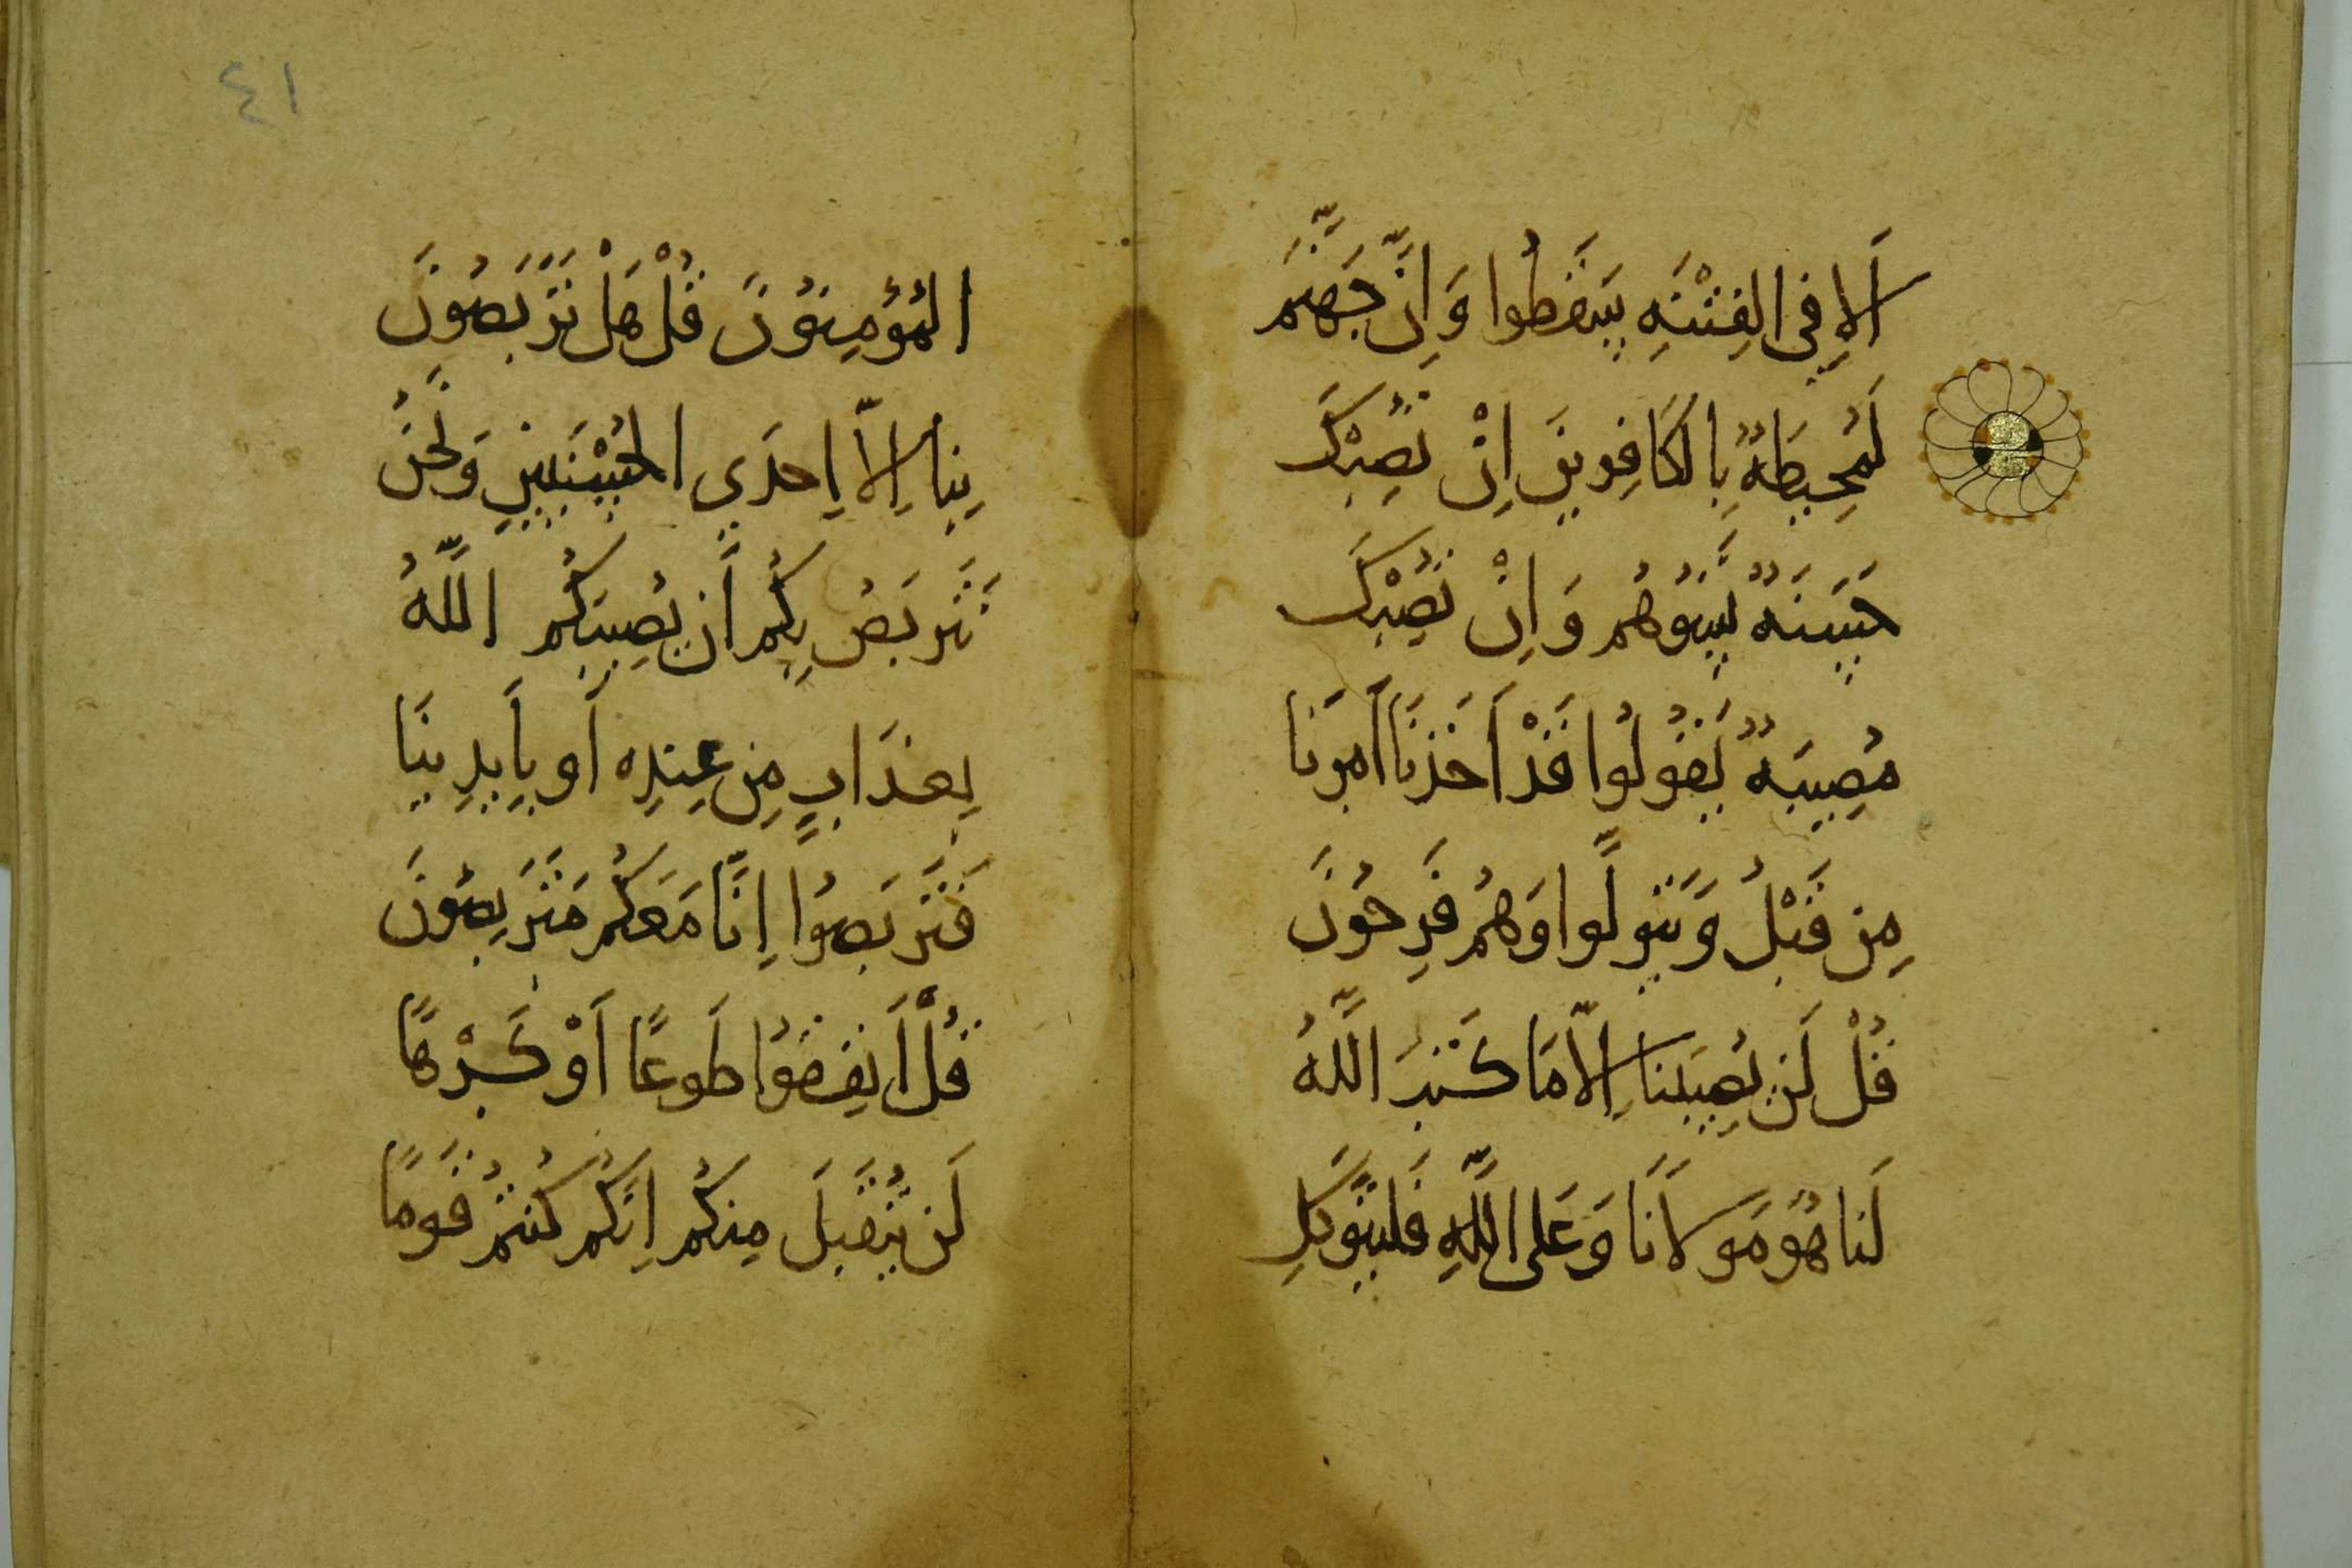 أَلَا فِي الفِتْنَةِ سَقَطُوا وَإِنَّ جَهَنَّمَ
لَمُحِيطَةٌ بِالكَافِرِينَ إِنْ تُصِبْكَ
حَسَنَةٌ تَسُؤهُم وَإِنْ تُصِبْكَ
مُصِيبَةٌ يَقُولُوا قَدْ أَخَذنَا أَمرَنَا
مِن قَبْلُ وَيَتَوَلَّوا وَهُم فَرِحُونَ
قُلْ لَن يُصِيبَنَا إِلَّا مَا كَتَبَ اللَّهُ
لَنَا هُوَ مَولَانَا وَعَلَى اللَّهِ فَليَتَوَكَّلِ
٤١
المُؤمِنُونَ قُلْ هَلْ تَرَبَصُونَ
بِنا إِلَّا إِحدَي الحُسْنَيَينِ وَنَحنُ
نَتَرَبَصُ بِكُم أَن يُصِيبَكُم اللَّهُ
بِعَذَابٍ مِن عِندِه أَو بِأَيدِينَا
فَتَرَبَصُوا إِنَّا مَعَكُم مُتَرَبِصُونَ
قُلْ أَنفِقُوا طَوعًا أَوْ كَرْهًا
لَن يُتَقَبلَ مِنكُم إِنَكُم كُنتُم قَومًا